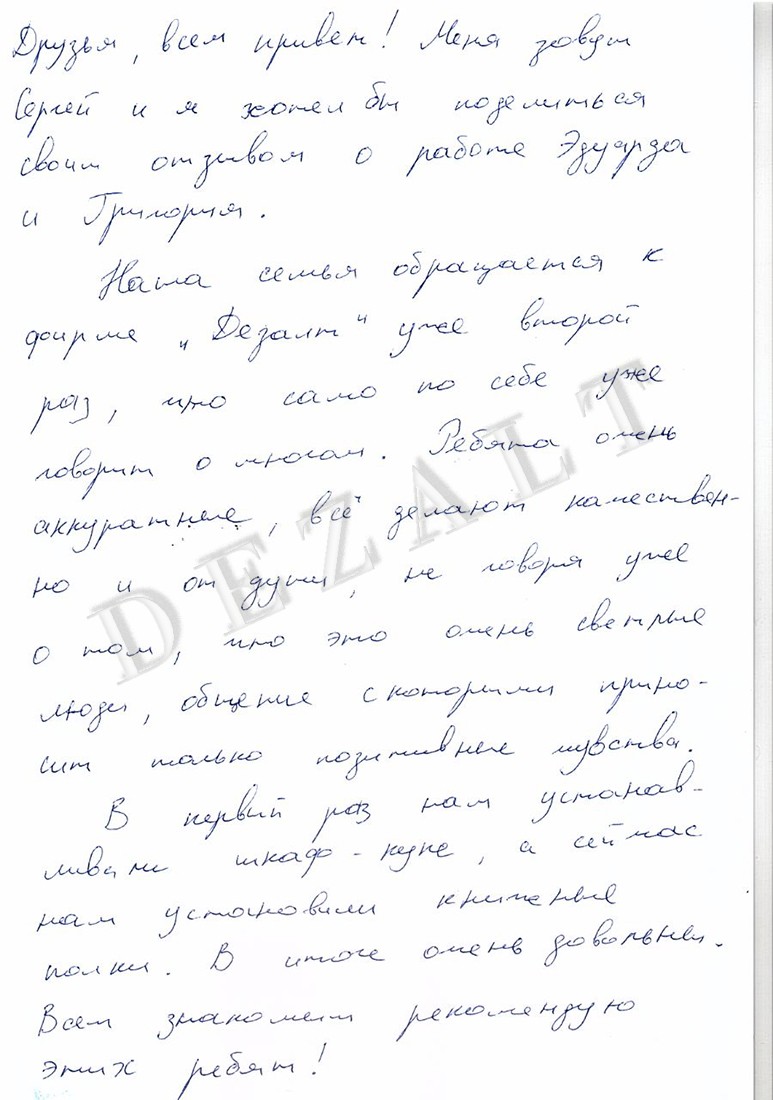 Друзья, всем привет! Меня зовут
Сергей и я хотел бы поделиться
своим отзывом о работе Эдуарда
и Григория.
Наша семья обращается к
фирме „Дезалт" уже второй
раз, что само по себе уже
говорит о многом. Ребята очень
аккуратные, всё делают качествен-
но и от души, не говоря уже
о том, что это очень светлые
люди, общение с которыми прино-
сит только позитивные чувства.
В первый раз нам устанав-
ливали шкаф-купе, а сейчас
нам установили книжные
полки. В итоге очень довольны.
Всем знакомым рекомендую
этих ребят!
DEZALT